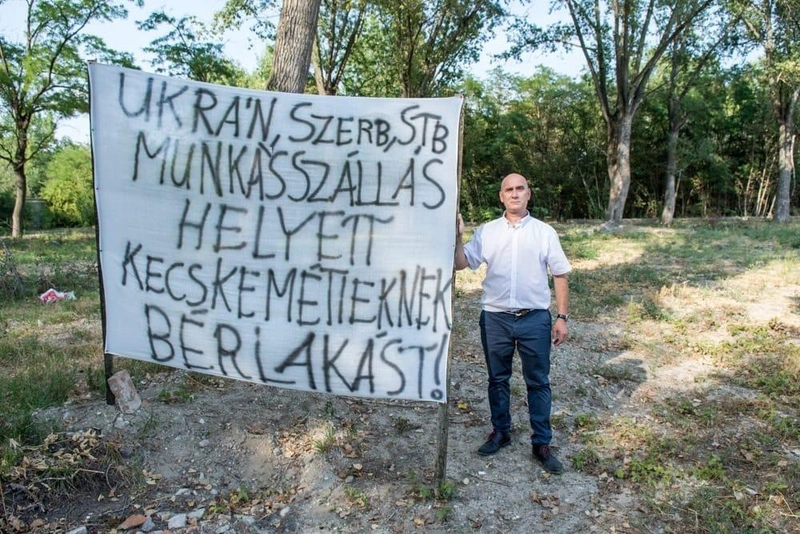 UKRÁN, SZERB, STB
MUNKÁSSZÁLLÁS
HELYETT
KECSKEMÉTIEKNEK
BÉRLAKÁST!